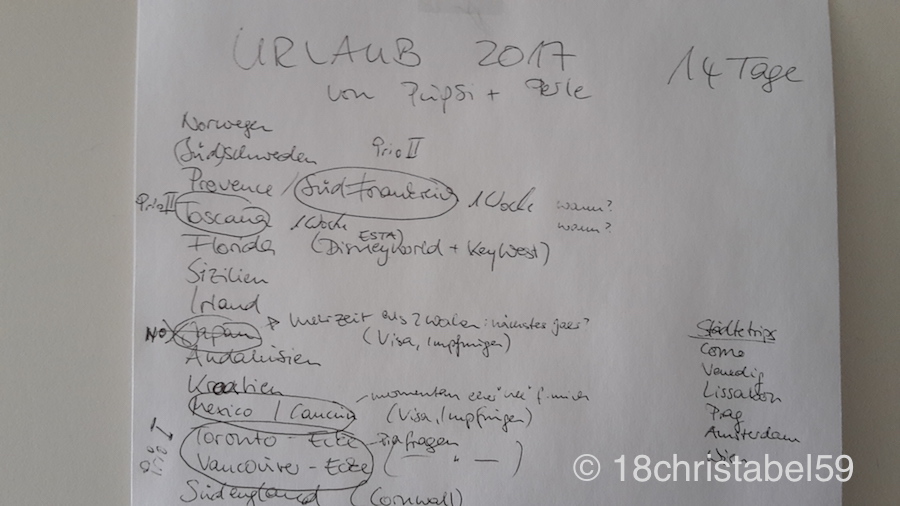 URLAUB 2017
14 Tage
von Pupsi + Perle
Norwegen
(Süd)schweden
Prio II
Provence / Südfrankreich 1 Woche wann?
Prio II Toscana 1 Woche wann?
ESTA
Florida (Disneyworld + KeyWest)
Sizilien
Irland
mehr Zeit als 2 Wochen: nächstes Jahr?
NO Japan (Visa, Impfungen)
Andalusien
Kroatien
momentan f. mich
Mexico / Cancun (Visa, Impfungen)
Prio I
Toronto - Ecke
Vancouver - Ecke ( — " — )
Südengland (Cornwall)
Städtetrips
Como
Venedig
Lissabon
Prag
Amsterdam
© 18christabel59